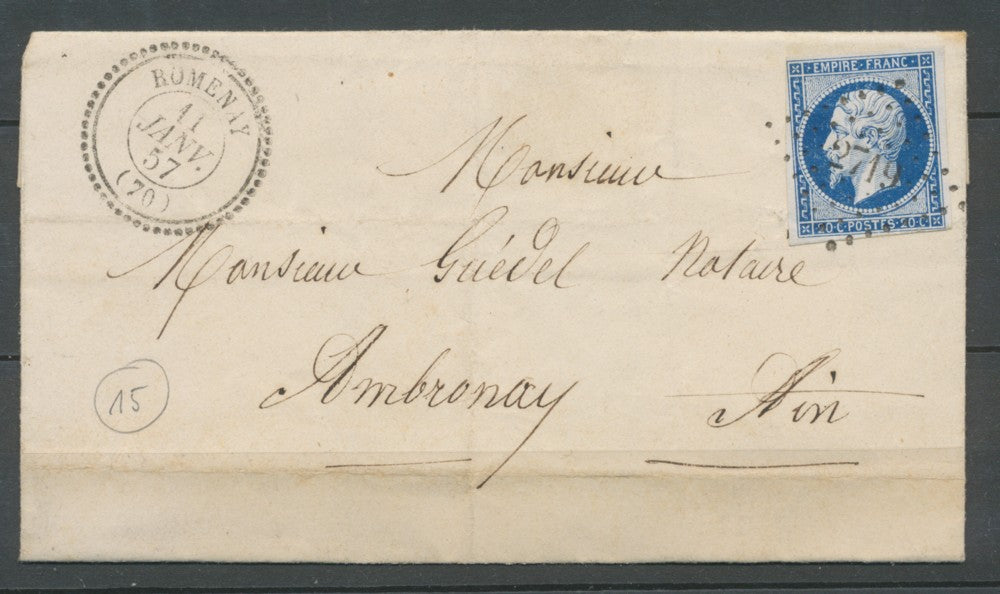 ROMENAY
11
JANV.
57
(70)
EMPIRE·FRANC·
20·C·POSTES·20·C·
Monsieur
Monsieur Guédel Notaire
Ambronay Ain
15